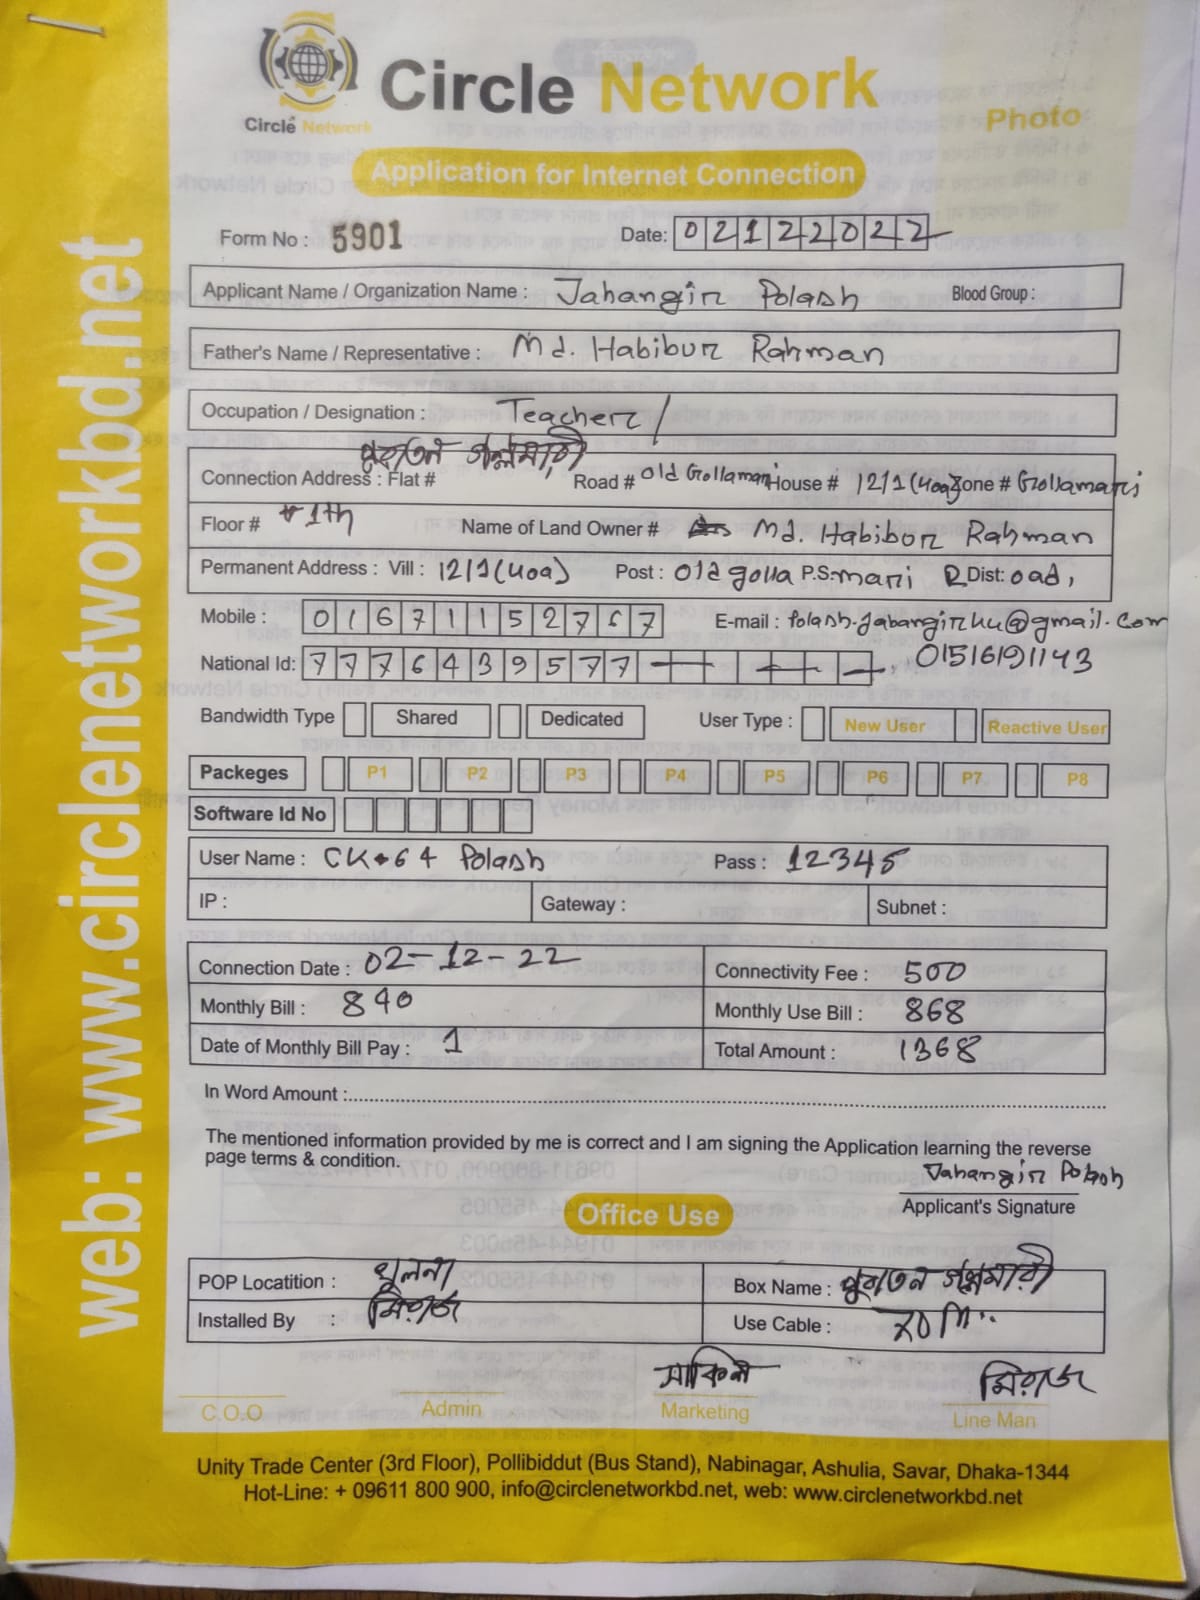 web: www.circlenetworkbd.net
Circle Network
Circle Network
Photo
Application for Internet Connection
Form No : 5901
Date: 02122022
Applicant Name / Organization Name : Jahangir Polash Blood Group :
Father's Name / Representative : Md. Habibur Rahman
Occupation / Designation : Teacher /
পুরাতন গল্লামারী
Connection Address : Flat # Road # Old Gollamari House # 12/1 (400) Zone # Gollamari
Floor # 1th Name of Land Owner # Md. Habibor Rahman
Permanent Address : Vill : 12/1 (400) Post : Old golla P.S: mari R Dist: oad,
Mobile : 01671152767 E-mail : Polash.jahangirku@gmail.com
National Id: 7776439577 01516191143
Bandwidth Type Shared Dedicated User Type : New User Reactive User
Packeges P1 P2 P3 P4 P5 P6 P7 P8
Software Id No
User Name : CK 64 Polash Pass : 12345
IP : Gateway : Subnet :
Connection Date : 02-12-22 Connectivity Fee : 500
Monthly Bill : 840 Monthly Use Bill : 868
Date of Monthly Bill Pay : 1 Total Amount : 1368
In Word Amount :
The mentioned information provided by me is correct and I am signing the Application learning the reverse
page terms & condition.
Jahangir Polash
Applicant's Signature
Office Use
POP Locatition : খুলনা Box Name : পুরাতন গল্লামারী
Installed By : মিরাজ Use Cable : 20 M
সাকিব মিরাজ
C.O.O Admin Marketing Line Man
Unity Trade Center (3rd Floor), Pollibiddut (Bus Stand), Nabinagar, Ashulia, Savar, Dhaka-1344
Hot-Line: + 09611 800 900, info@circlenetworkbd.net, web: www.circlenetworkbd.net